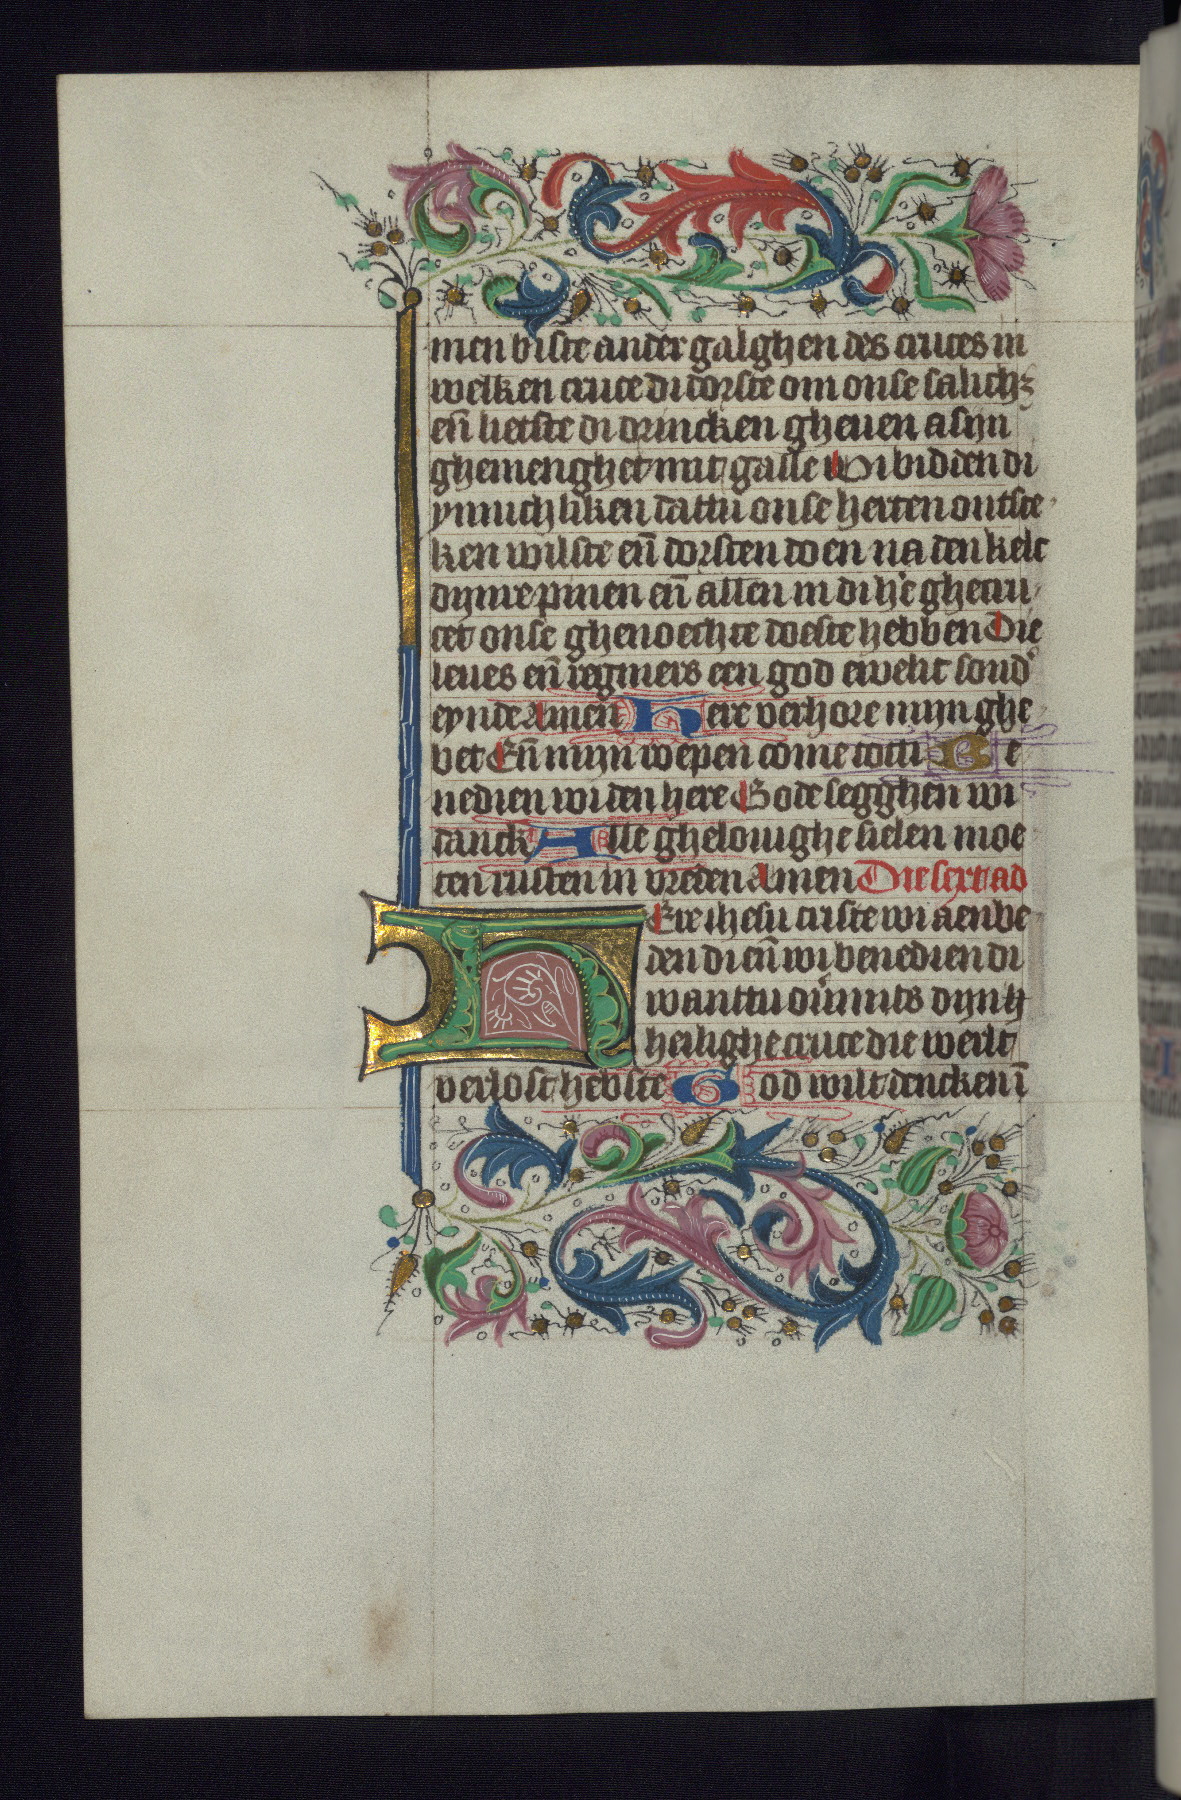 men biste ander galghen des cruces in
welken cruce di dorste om onse salichꝫ
eñ lietste di drincken gheuen asyn
ghemenghet mit galle Wi bidden di
ynnichliken dattu onse herten ontste
ken wilste eñ dorsten doen na den kelc
dynre pinen eñ allen in di h̄e ghecru
cet onse ghenoechte doeste hebben Die
leues eñ regniers een god ewelic sond᷑
eynde Amen Here verhore mijn ghe
bet Eñ mijn wepen come totti Be
nedien wi den here Gode segghen wi
danck Alle ghelouighe sielen moe
ten rusten in vreden Amen Die sext ad
HEre ihesu criste wi aenbe
den di eñ wi benedien di
wanttu ou̅mits dijnr
heilighe cruce die werlt
verlost hebste God wilt dencken ī